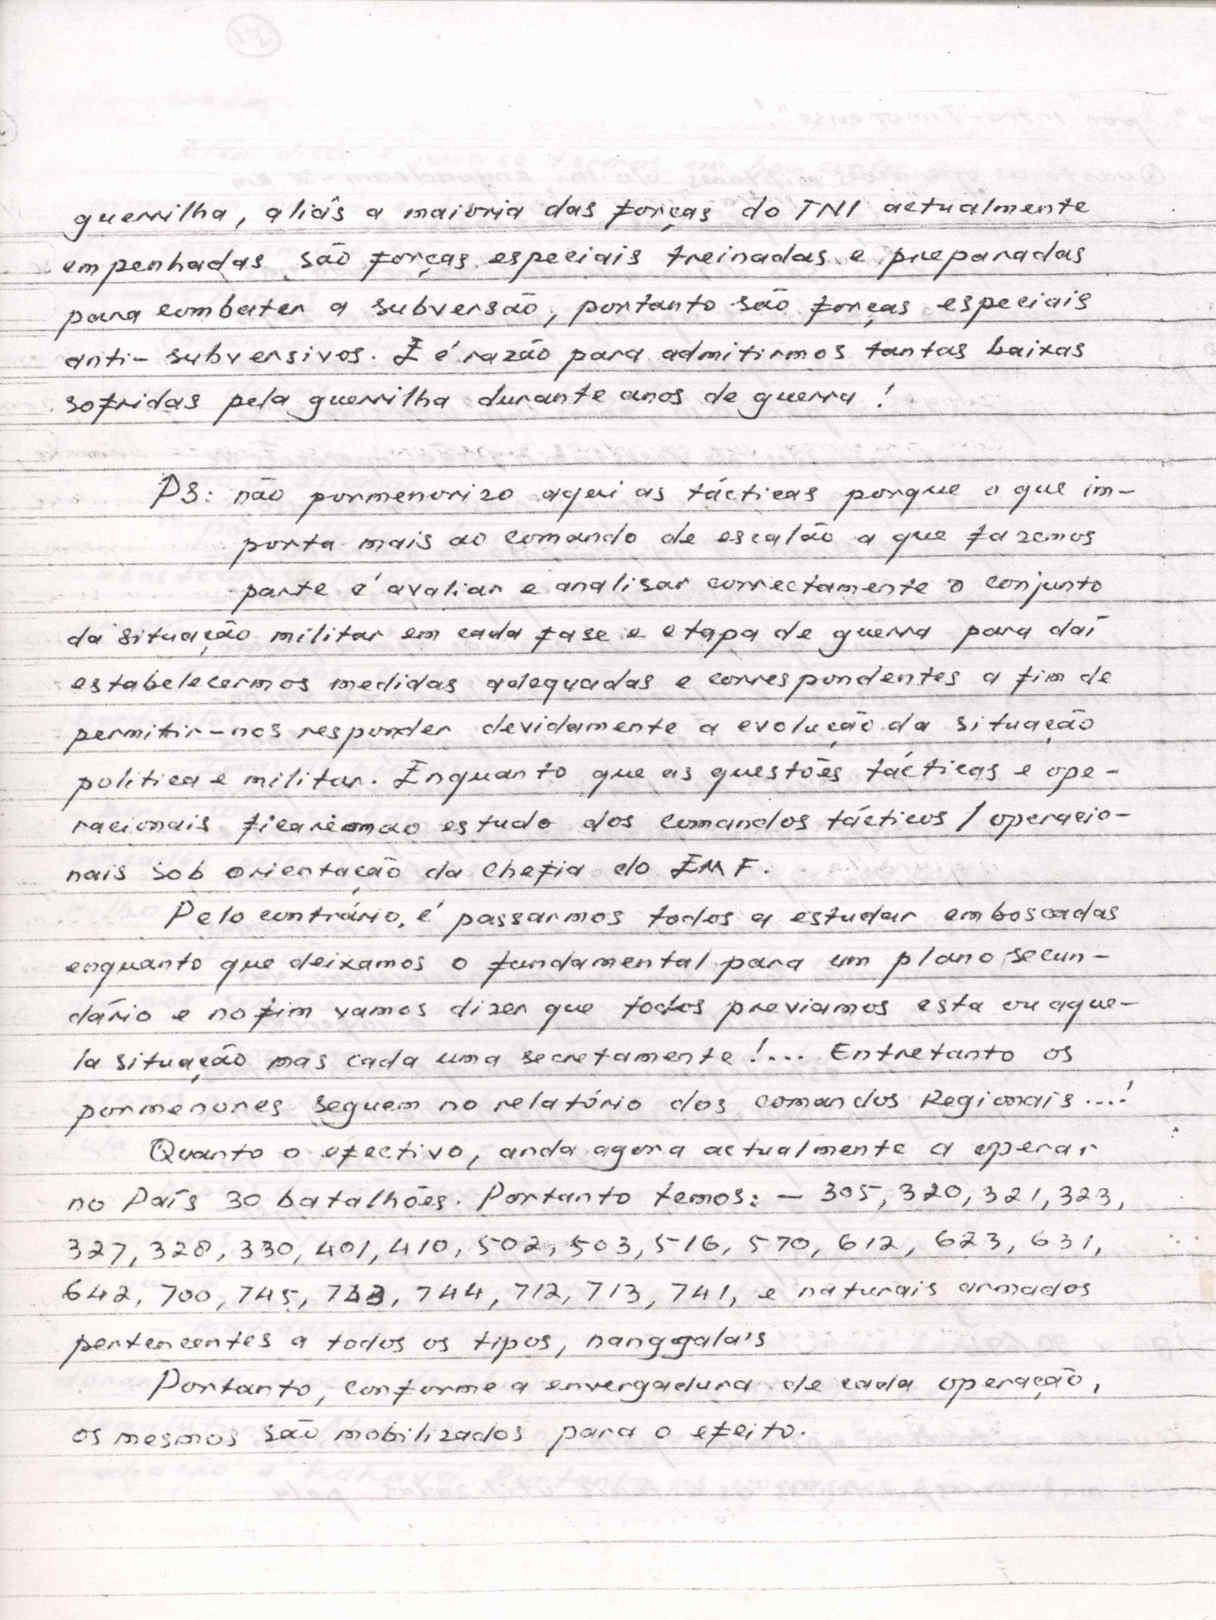 guerrilha, aliás a maioria das forças do TNI actualmente
empenhadas são forças especiais treinadas e preparadas
para combater a subversão, portanto são forças especiais
anti-subversivos. E é razão para admitirmos tantas baixas
sofridas pela guerrilha durante anos de guerra!
PS: não pormenorizo aqui as tácticas porque o que im-
porta mais ao comando de escalão a que fazemos
parte é avaliar e analisar correctamente o conjunto
da situação militar em cada fase e etapa de guerra para daí
estabelecermos medidas adequadas e correspondentes a fim de
permitir-nos responder devidamente a evolução da situação
politica e militar. Enquanto que as questões tácticas e ope-
racionais ficariam ao estudo dos comandos tácticos/operacio-
nais sob orientação da Chefia do EMF.
Pelo contrário, é passarmos todos a estudar emboscadas
enquanto que deixamos o fundamental para um plano secun-
dário e no fim vamos dizer que todos previamos esta ou aque-
la situação mas cada uma secretamente!... Entretanto os
pormenores seguem no relatório dos comandos Regionais...!
Quanto o efectivo, anda agora actualmente a operar
no País 30 batalhões. Portanto temos: - 305, 320, 321, 323,
327, 328, 330, 401, 410, 502, 503, 516, 570, 612, 623, 631,
642, 700, 745, 743, 744, 712, 713, 741, e naturais armados
pertencentes a todos os tipos, nanggala's
Portanto, conforme a envergadura de cada operação,
os mesmos são mobilizados para o efeito.